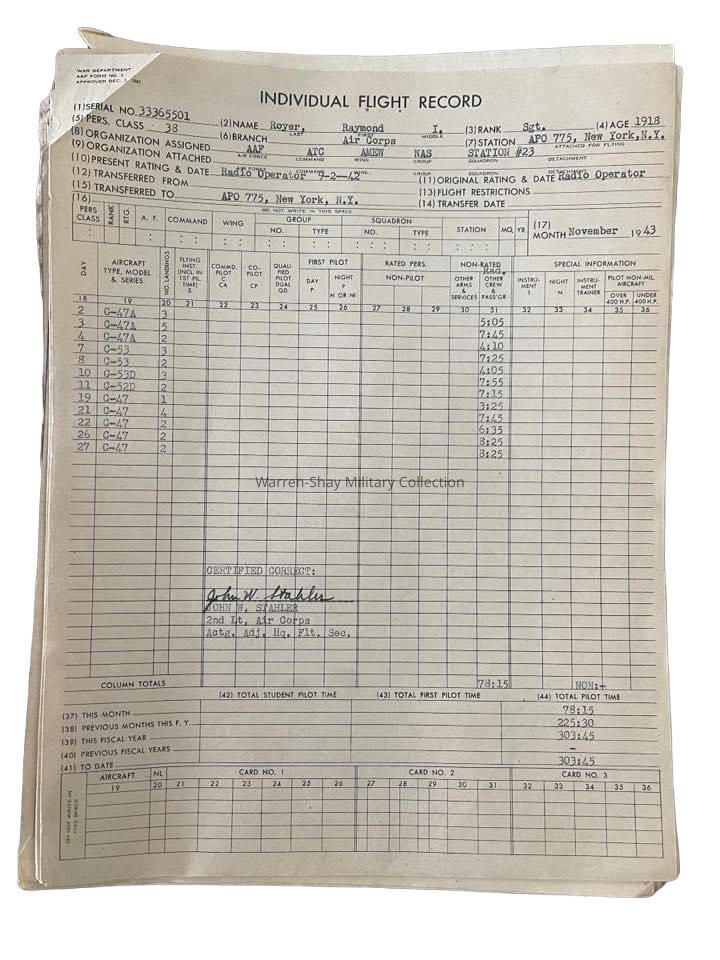 WAR DEPARTMENT
AAF FORM NO. 5
APPROVED DEC. 7, 1942
INDIVIDUAL FLIGHT RECORD
(1) SERIAL NO. 33365501 (2) NAME Royer, Raymond I. (3) RANK Sgt. (4) AGE 1918
LAST FIRST MIDDLE
(5) PERS. CLASS 38 (6) BRANCH Air Corps (7) STATION APO 775, New York, N.Y.
(8) ORGANIZATION ASSIGNED AAF ATC AMEW NAS STATION #23
AIR FORCE COMMAND WING GROUP SQUADRON DETACHMENT
ATTACHED FOR FLYING
(9) ORGANIZATION ATTACHED
COMMAND WING GROUP SQUADRON DETACHMENT
(10) PRESENT RATING & DATE Radio Operator 9-2-42 (11) ORIGINAL RATING & DATE Radio Operator
(12) TRANSFERRED FROM (13) FLIGHT RESTRICTIONS
(15) TRANSFERRED TO APO 775, New York, N.Y. (14) TRANSFER DATE
(16) DO NOT WRITE IN THIS SPACE
PERS CLASS RANK RTG. A. F. COMMAND WING GROUP NO. TYPE SQUADRON NO. TYPE STATION MO. YR. (17) MONTH November 1943
DAY AIRCRAFT TYPE, MODEL & SERIES NO LANDINGS FLYING INST. (INCL. IN 1ST PIL. TIME) S COMMD. PILOT C CA CO-PILOT CP QUALI-FIED PILOT DUAL QD FIRST PILOT DAY P NIGHT P N OR NI RATED PERS. NON-PILOT NON-RATED OTHER ARMS & SERVICES Rad. OTHER CREW & PASS'GR SPECIAL INFORMATION INSTRU-MENT I NIGHT N INSTRU-MENT TRAINER PILOT NON-MIL. AIRCRAFT OVER 400 H.P. UNDER 400 H.P.
18 19 20 21 22 23 24 25 26 27 28 29 30 31 32 33 34 35 36
2 C-47A 3 5:05
3 C-47A 5 7:45
4 C-47A 2 4:10
7 C-53 3 7:25
8 C-53 2 4:05
10 C-53D 3 7:55
11 C-52D 2 7:15
19 C-47 1 3:25
21 C-47 4 7:45
22 C-47 2 6:35
26 C-47 2 8:25
27 C-47 2 8:25
Warren-Shay Military Collection
CERTIFIED CORRECT:
John W. Stahler
JOHN W. STAHLER
2nd Lt, Air Corps
Actg. Adj. Hq. Flt. Sec.
COLUMN TOTALS 78:15 NON:+
(42) TOTAL STUDENT PILOT TIME (43) TOTAL FIRST PILOT TIME (44) TOTAL PILOT TIME
(37) THIS MONTH 78:15
(38) PREVIOUS MONTHS THIS F. Y. 225:30
(39) THIS FISCAL YEAR 303:45
(40) PREVIOUS FISCAL YEARS -
(41) TO DATE 303:45
AIRCRAFT NL CARD NO. 1 CARD NO. 2 CARD NO. 3
19 20 21 22 23 24 25 26 27 28 29 30 31 32 33 34 35 36
DO NOT WRITE IN THIS SPACE